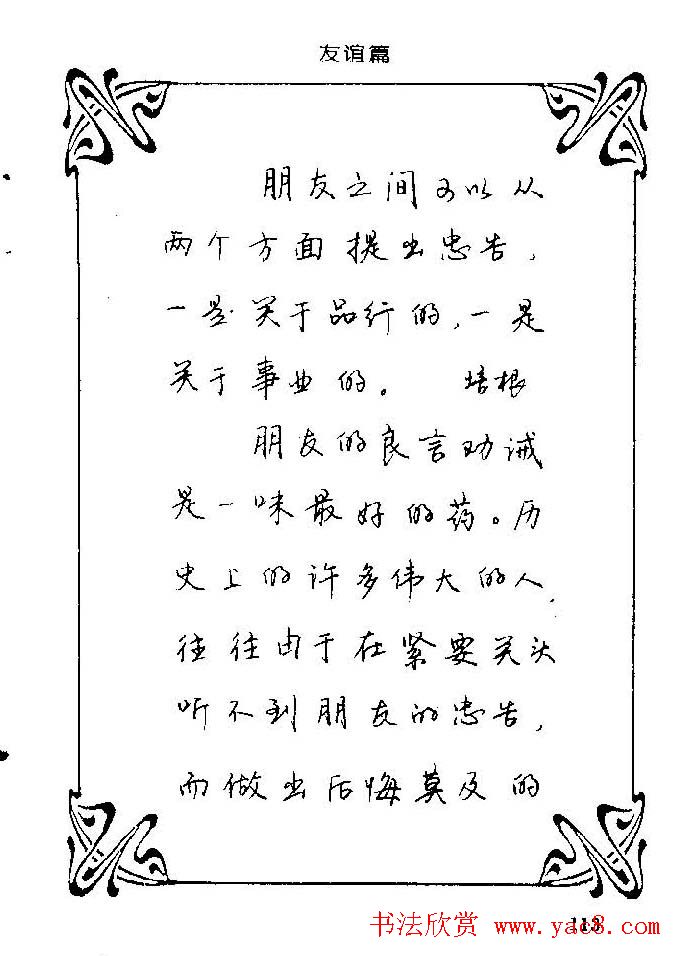 友谊篇
朋友之间可以从
两个方面提出忠告，
一是关于品行的，一是
关于事业的。 培根
朋友的良言劝诫
是一味最好的药。历
史上的许多伟大的人，
往往由于在紧要关头
听不到朋友的忠告，
而做出后悔莫及的
113
书法欣赏 www.yac8.com